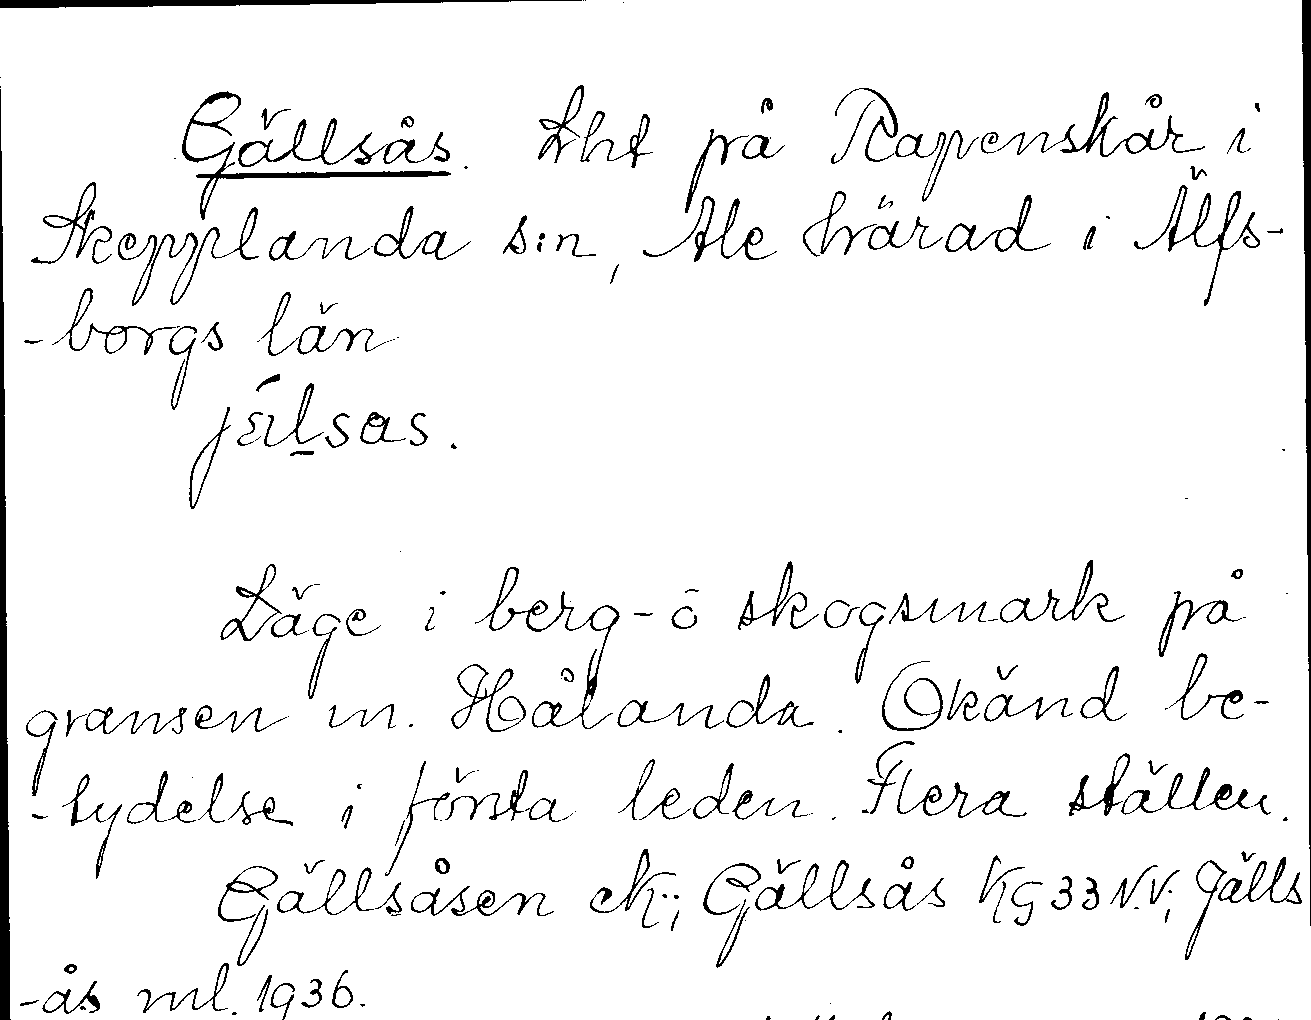 Gällsås. Lht på Rapenskår i
Skepplanda s:n, Ale härad i Älfs-
-borgs län
Läge i berg- o skogsmark på
gränsen m. Hålanda. Okänd be-
-tydelse i första leden. Flera ställen.
Gällsåsen ek.; Gällsås KG 33 N.V; Jälls
-ås ml. 1936.